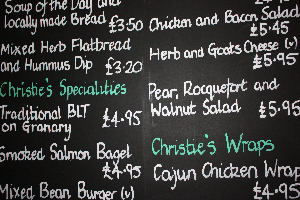 Soup of the Day and
locally made Bread £3.50
Mixed Herb Flatbread
and Hummus Dip £3.20
Christie's Specialities
Traditional BLT
on Granary £4.95
Smoked Salmon Bagel
£4.95
Mixed Bean Burger (v)
Chicken and Bacon Salad
£5.45
Herb and Goats Cheese (v)
£5.95
Pear, Rocquefort and
Walnut Salad £5.95
Christie's Wraps
Cajun Chicken Wrap
£4.95